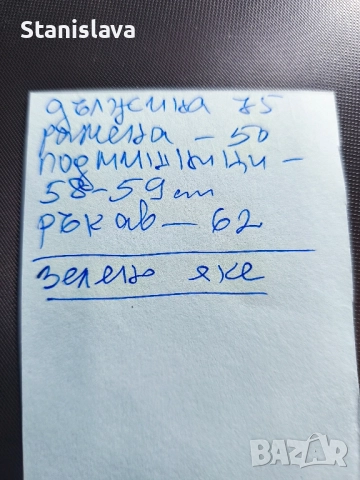 Stanislava
дължина 75
рамена - 50
подмишници -
58-59 cm
ръкав - 62
зелено яке
BAZAR